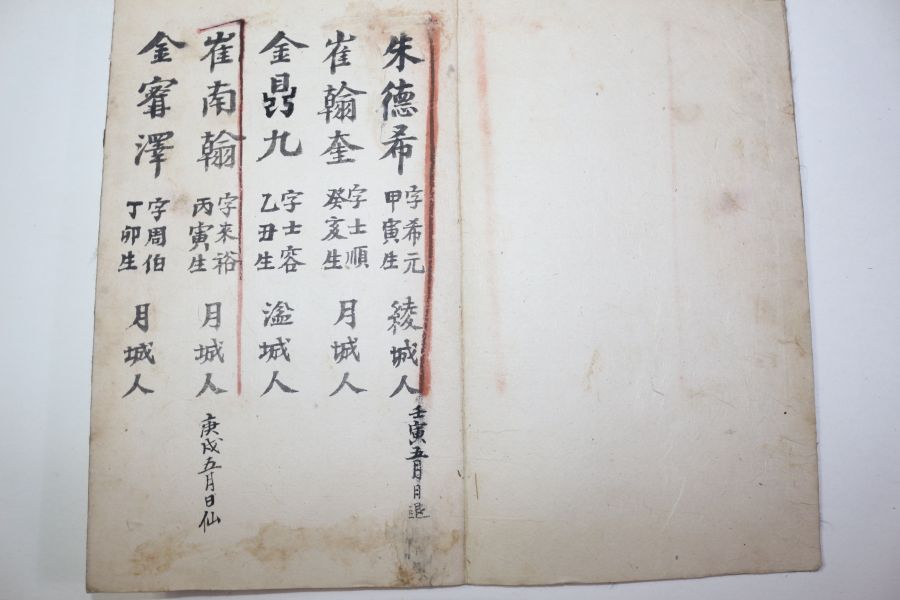 朱德希 字希元 甲寅生 綾城人 壬寅五月日退
崔翰奎 字士順 癸亥生 月城人
金鼎九 字士容 乙丑生 盆城人
崔南翰 字來裕 丙寅生 月城人 庚戌五月日仙
金容澤 字周伯 丁卯生 月城人